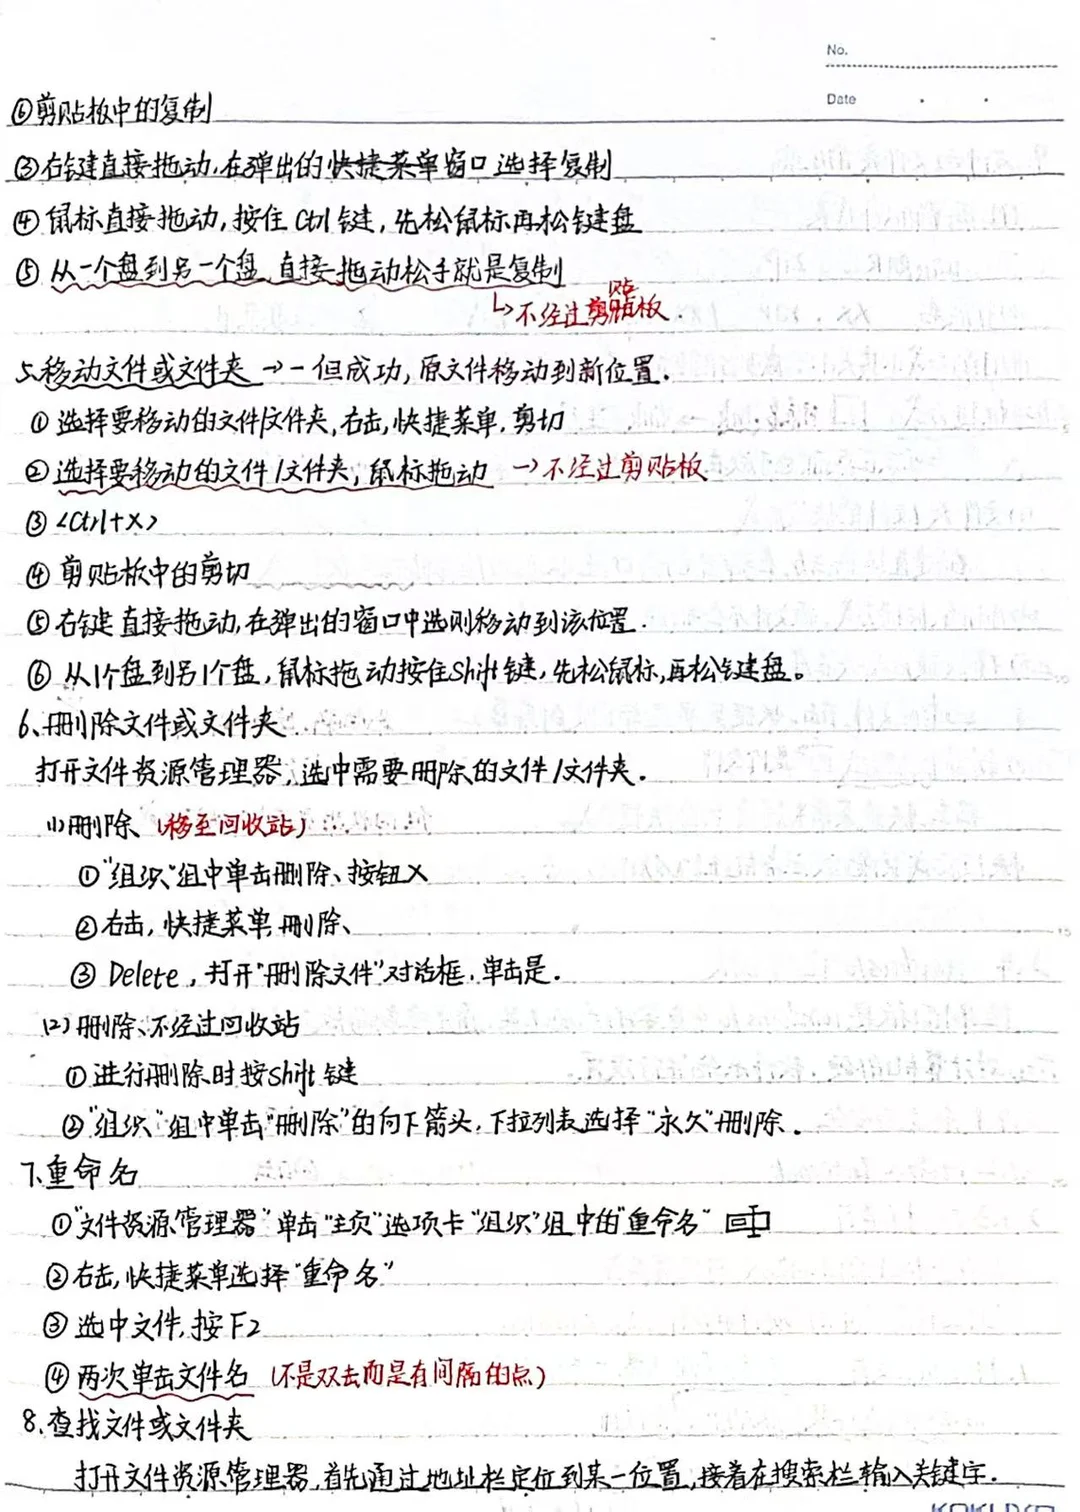 No.
Date
⑥剪贴板中的复制
③右键直接拖动,在弹出的快捷菜单窗口选择复制
④鼠标直接拖动,按住Ctrl键,先松鼠标再松键盘
⑤从一个盘到另一个盘,直接拖动松手就是复制
贴
↳不经过剪贴板
5.移动文件或文件夹→一但成功,原文件移动到新位置.
①选择要移动的文件/文件夹,右击,快捷菜单,剪切
②选择要移动的文件/文件夹,鼠标拖动 →不经过剪贴板
③<Ctrl+X>
④剪贴板中的剪切
⑤右键直接拖动,在弹出的窗口中选则移动到该位置.
⑥从1个盘到另1个盘,鼠标拖动按住Shift键,先松鼠标,再松键盘。
6、删除文件或文件夹
打开文件资源管理器,选中需要删除的文件/文件夹.
(1)删除、(移至回收站)
①"组织"组中单击删除、按钮X
②右击,快捷菜单,删除、
③Delete,打开"删除文件"对话框,单击是.
(2)删除、不经过回收站
①进行删除时按Shift键
②"组织"组中单击"删除"的向下箭头,下拉列表选择"永久"删除.
7.重命名
①"文件资源管理器"单击"主页"选项卡"组织"组中的"重命名"
②右击,快捷菜单选择"重命名"
③选中文件,按F2
④两次单击文件名 (不是双击而是有间隔的点)
8.查找文件或文件夹
打开文件资源管理器,首先通过地址栏定位到某一位置,接着在搜索栏输入关键字.